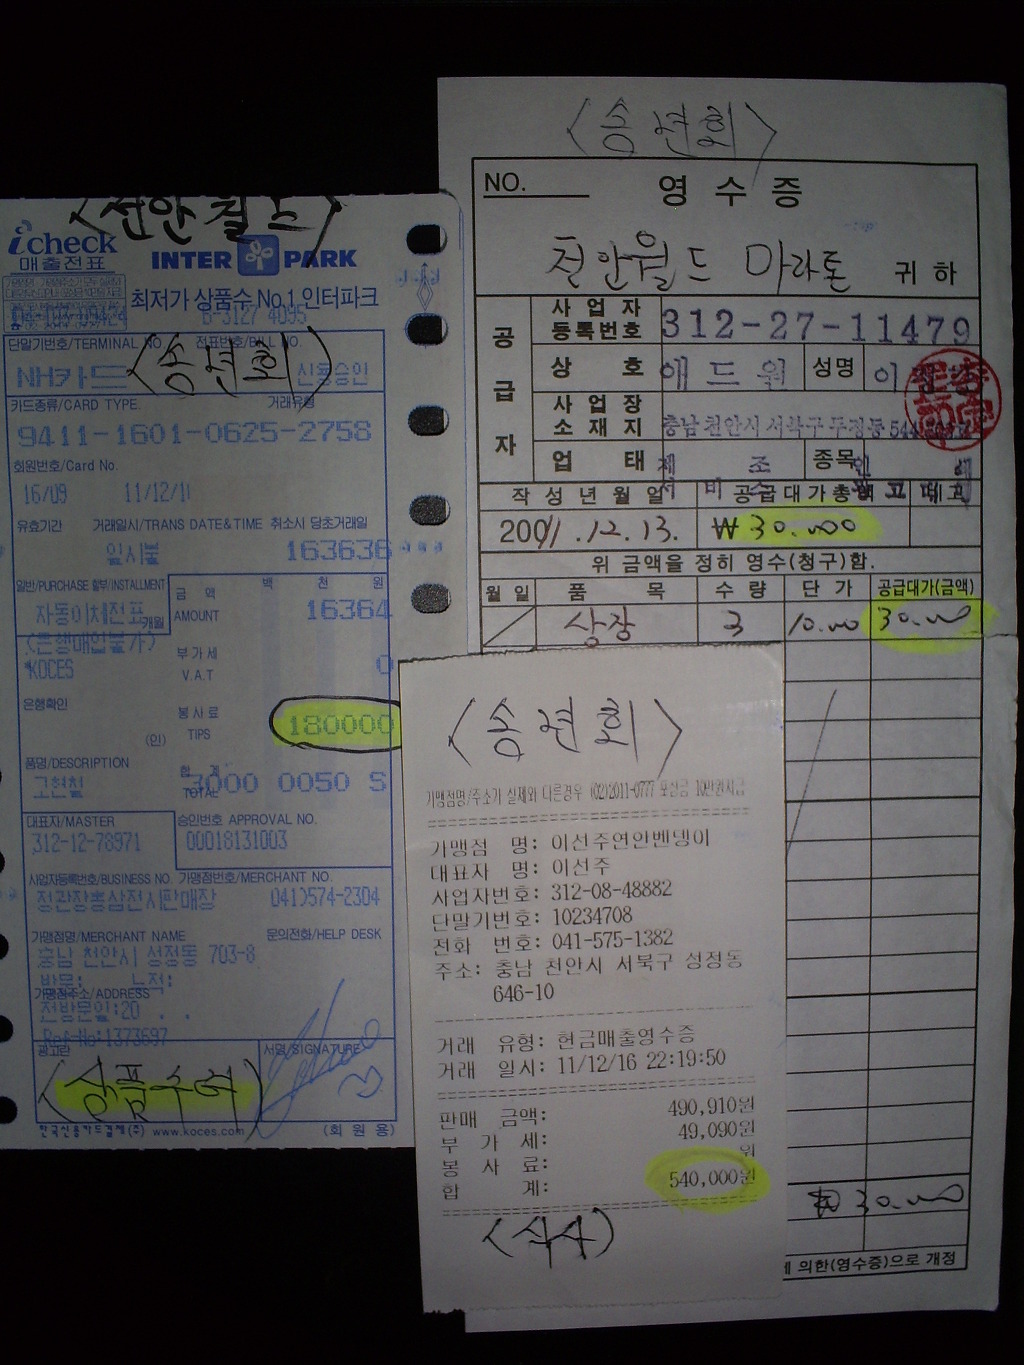 <천안월드>
icheck
매출전표
INTER PARK
최저가 상품수 No.1 인터파크
단말기번호/TERMINAL NO. 전표번호/BILL NO.
<송년회>
NH카드 신용승인
카드종류/CARD TYPE. 거래유형
9411-1601-0625-2758
회원번호/Card No.
16/09 11/12/11
유효기간 거래일시/TRANS DATE&TIME 취소시 당초거래일
일시불 163636
일반/PURCHASE 할부/INSTALLMENT 금액 백 천 원
AMOUNT 16364
자동이체전표 개월
<은행매입불가>
*KOCES
부가세
V.A.T 0
은행확인
(인)
봉사료
TIPS 180000
품명/DESCRIPTION 합계
고현철 TOTAL 3000 0050 S
대표자/MASTER 승인번호 APPROVAL NO.
312-12-78971 00018131003
사업자등록번호/BUSINESS NO. 가맹점번호/MERCHANT NO.
정관장홍삼전시판매장 041)574-2304
가맹점명/MERCHANT NAME 문의전화/HELP DESK
충남 천안시 성정동 703-8
방문: 누적:
가맹점주소/ADDRESS
전방문일:20 . .
Ref-No:1373697
광고란 서명/SIGNATURE
한국신용카드결제(주) www.koces.com (회원용)
<송년회>
NO.
영수증
천안월드 마라톤 귀하
공급자
사업자등록번호 312-27-11479
상호 애드원 성명 이
사업장소재지 충남 천안시 서북구 두정동
업태 제조 종목 인쇄
서비스 광고
작성년월일 공급대가총액 비고
2011.12.13. ₩30.000
위 금액을 정히 영수(청구)함.
월일 품목 수량 단가 공급대가(금액)
상장 3 10.000 30.000
₩30.000
의한(영수증)으로 개정
<송년회>
가맹점명/주소가 실제와 다른경우 (02)2011-0777 포상금 10만원지급
가맹점 명: 이선주연인벤뎅이
대표자 명: 이선주
사업자번호: 312-08-48882
단말기번호: 10234708
전화 번호: 041-575-1382
주소: 충남 천안시 서북구 성정동
646-10
거래 유형: 현금매출영수증
거래 일시: 11/12/16 22:19:50
판매 금액: 490,910원
부 가 세: 49,090원
봉 사 료: 원
합 계: 540,000원
<식사>